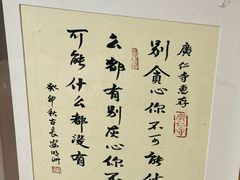 廣仁寺惠存
廣仁寺
别貪心你不可能什
么都有别灰心你不
可能什么都没有
癸卯秋古長安